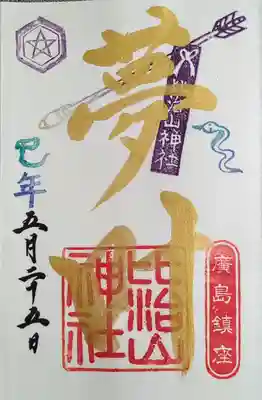 廣島鎮座
比治山神社
夢叶
比治山
神社
巳年五月二十五日